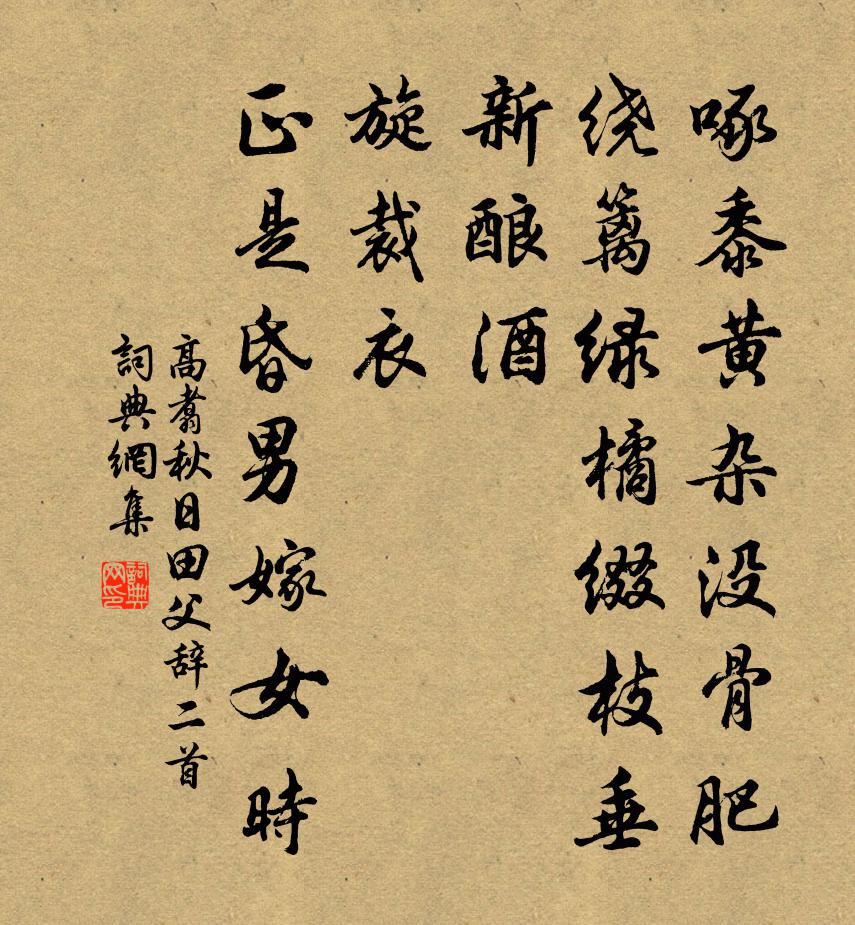 啄黍黄杂没骨肥
绕篱绿橘缀枝垂
新酿酒
旋裁衣
正是昏男嫁女时
高翥秋日田父辞二首
詞典網集
詞典网印